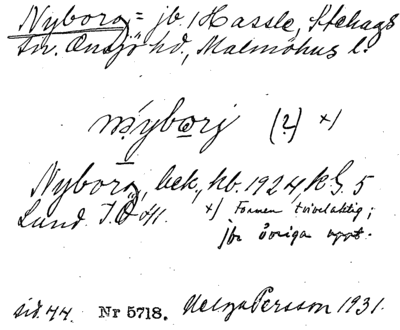 Nyborg = jb. i Hassle, Stehags
sn. Onsjö hd., Malmöhus l.
nýborj (?) x)
Nyborg, bck, hb. 1924, kG. 5
Lund I.Ö 41. x) Formen tvivelaktig;
jfr övriga uppt.
sid. 44. Nr 5718. Helga Persson 1931.